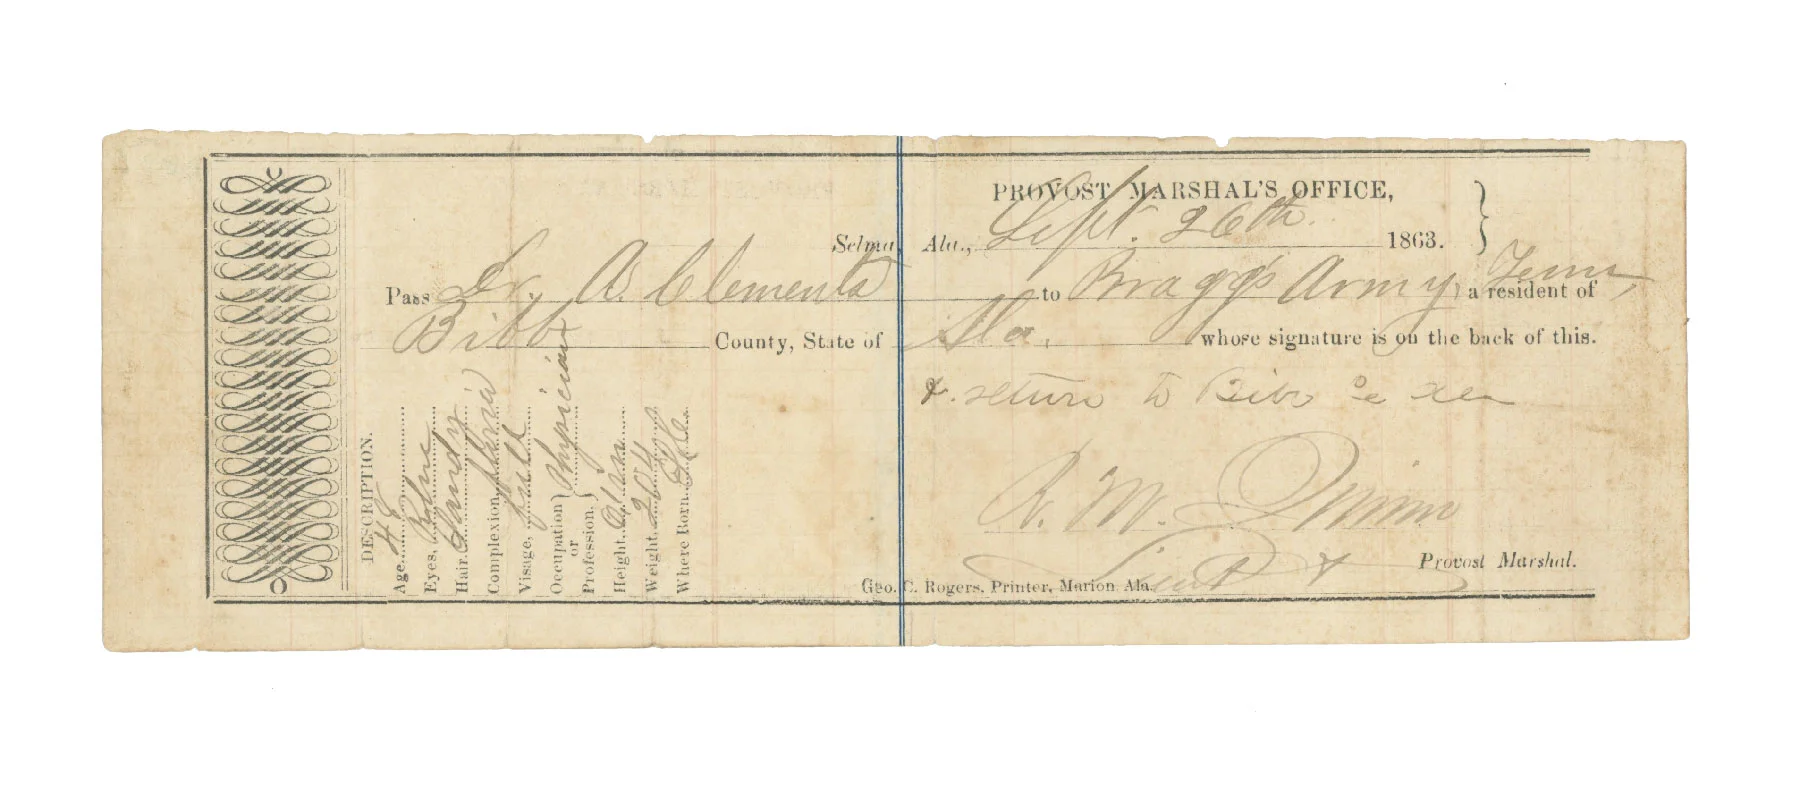 PROVOST MARSHAL'S OFFICE,
Selma, Ala., Sept. 26th 1863.
Pass Dr. A. Clements to Bragg's Army, Tenn, a resident of
Bibb County, State of Ala. whose signature is on the back of this.
& return to Bibb
R. M.
Lieut &
Provost Marshal.
Geo. C. Rogers, Printer, Marion Ala.
DESCRIPTION.
Age 48
Eyes, Blue
Hair Sandy
Complexion, Florid
Visage, full
Occupation or Profession, Physician
Height
Weight 204
Where Born